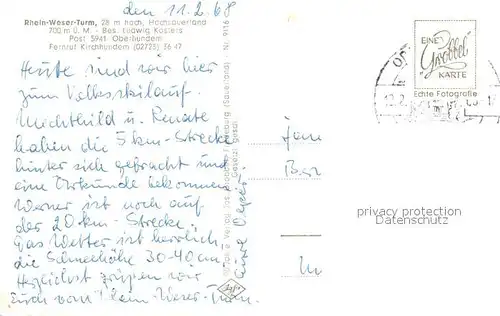 den 11.2.68
Rhein-Weser-Turm, 28 m hoch, Hochsauerland
700 m ü. M. - Bes. Ludwig Kosters
Post 5941 Oberhundem
Fernruf Kirchhundem (02723) 36 47
Heute sind wir hier
zum Volksskilauf.
Mechthild u. Renate
haben die 5 km-Strecke
hinter sich gebracht und
eine Urkunde bekommen
Werner ist noch auf
der 20 km-Strecke.
Das Wetter ist herrlich,
die Schneehöhe 30-40 cm.
Herzlichst grüßen wir
Euch vom Rhein-Weser-Turm.
Gesetzl. gesch.
EINE
Grobbel
KARTE
Echte Fotografie
privacy protection
Datenschutz
Agfa